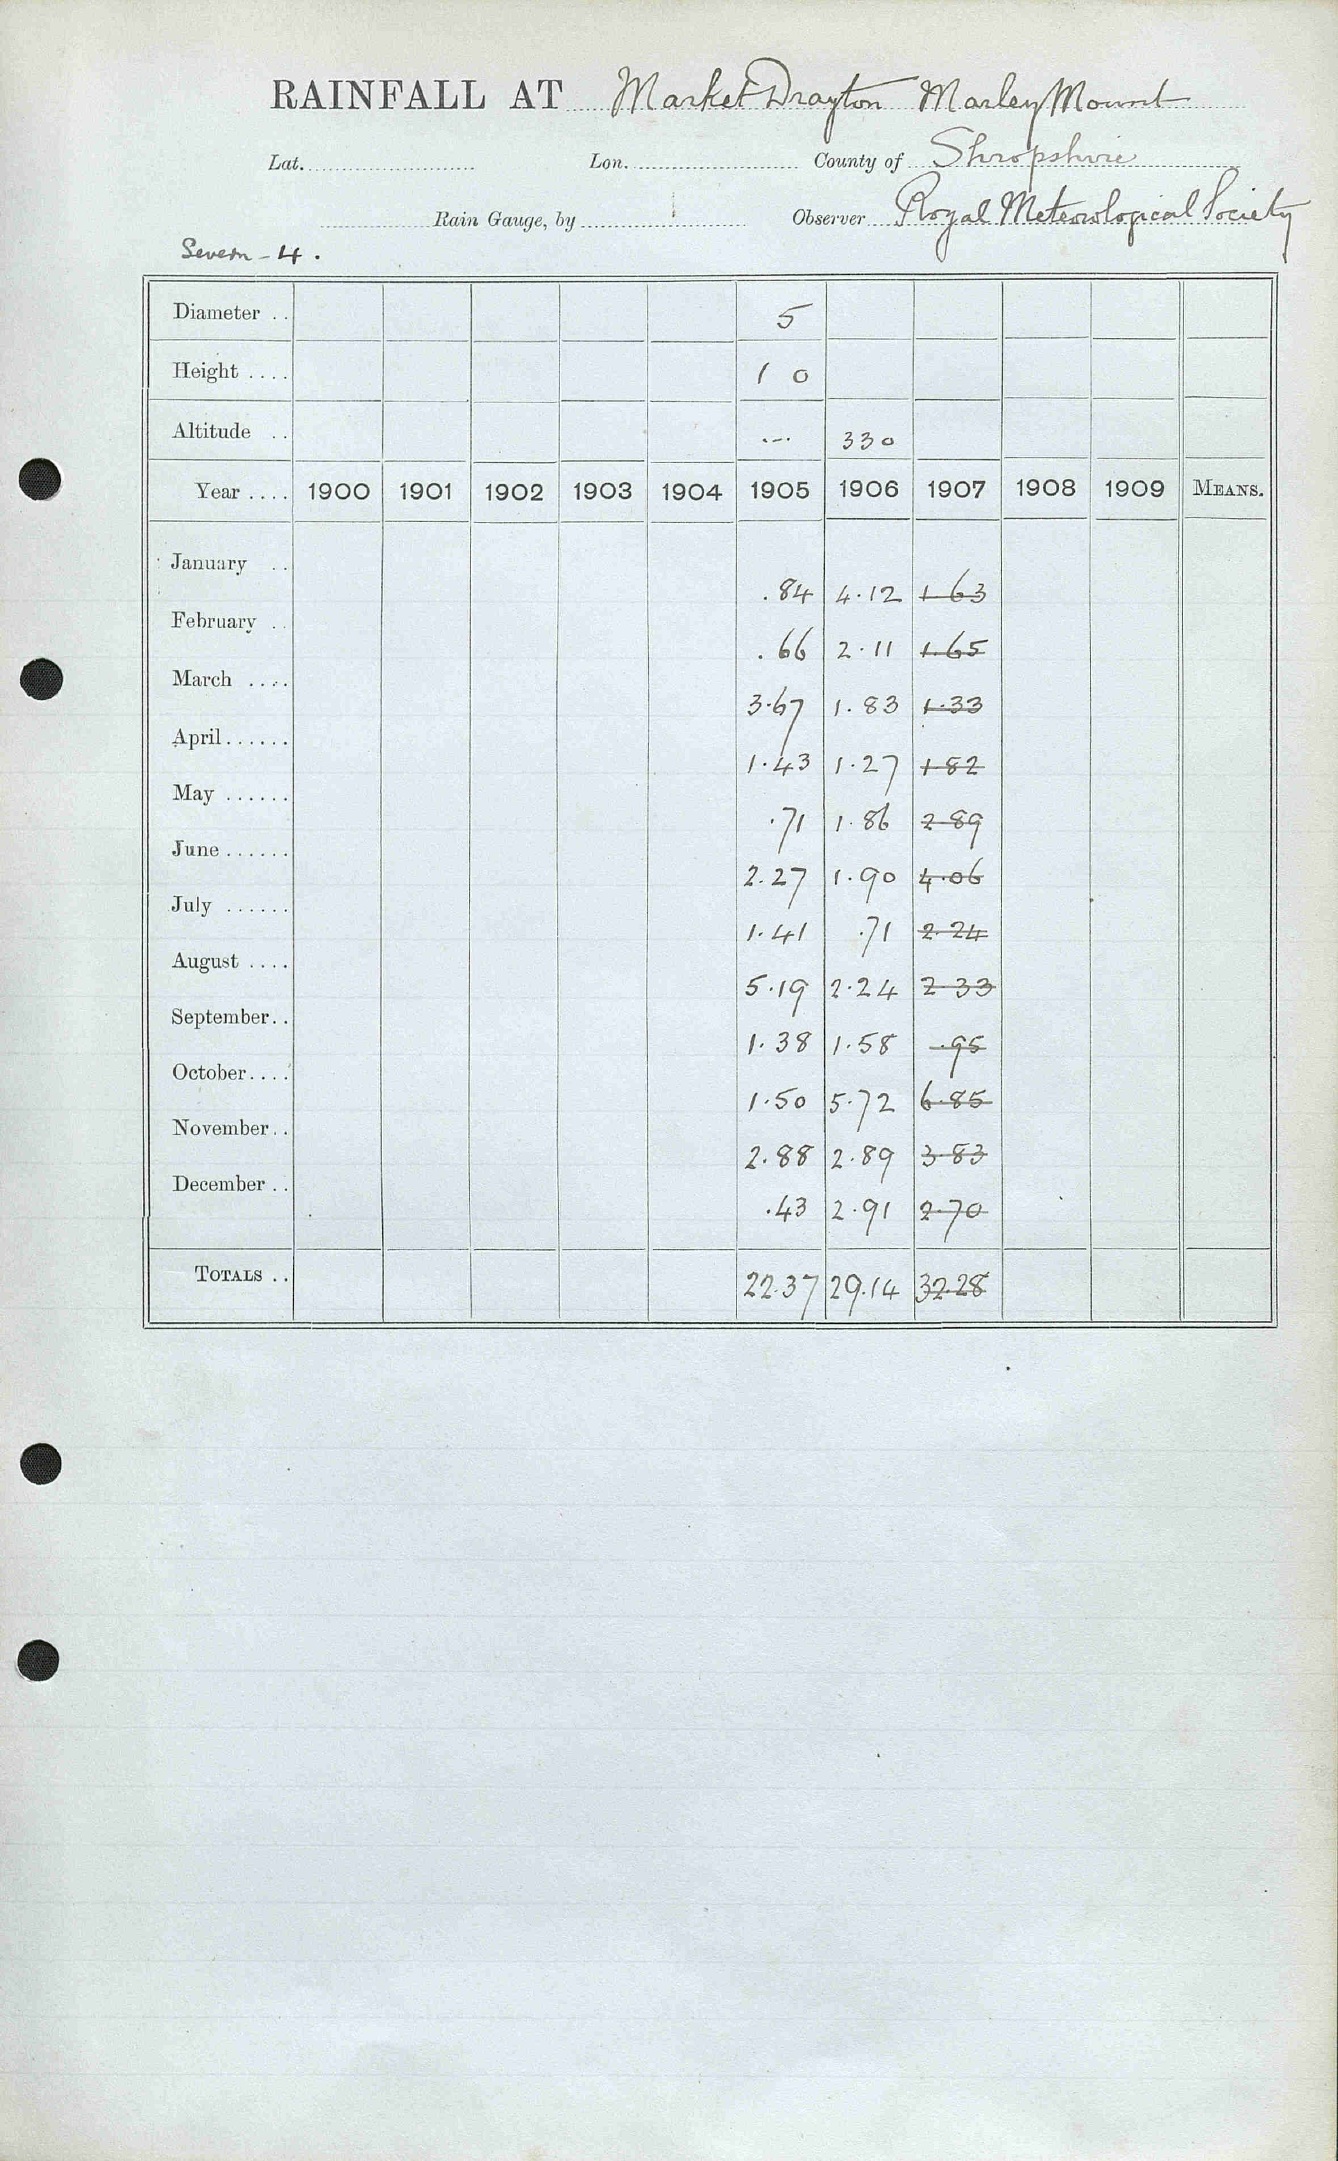 RAINFALL AT Market Drayton Marley Mount
Lat. Lon. County of Shropshire
Rain Gauge, by Observer Royal Meteorological Society
Severn - 4.
Diameter .. 5
Height .... 1 0
Altitude .. ... 330
Year .... 1900 1901 1902 1903 1904 1905 1906 1907 1908 1909 MEANS.
January .. .84 4.12 1.63
February .. .66 2.11 1.65
March .... 3.67 1.83 1.33
April...... 1.43 1.27 1.82
May ...... .71 1.86 2.89
June ...... 2.27 1.90 4.06
July ...... 1.41 .71 2.24
August .... 5.19 2.24 2.33
September.. 1.38 1.58 .95
October.... 1.50 5.72 6.85
November.. 2.88 2.89 3.83
December .. .43 2.91 2.70
TOTALS .. 22.37 29.14 32.28